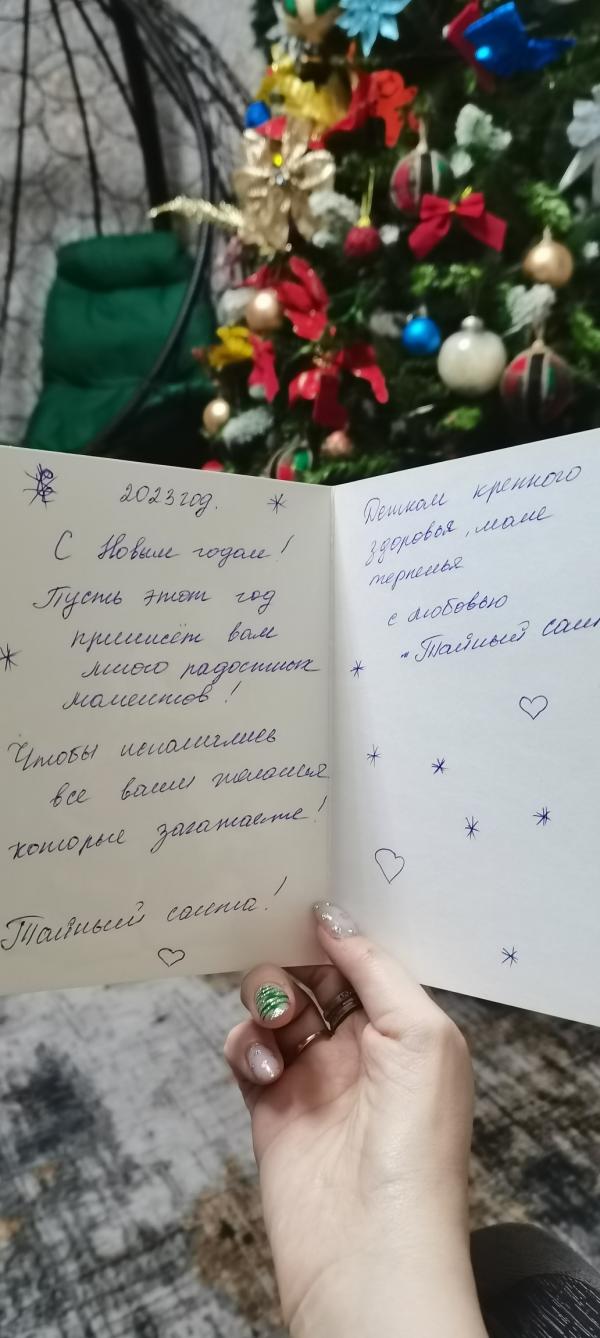 2023 год.
С Новым годом!
Пусть этот год
принесёт вам
много радостных
моментов!
Чтобы исполнились
все ваши желанья
которые загатаете!
Тайный санта!
Деткам крепкого
здоровья, маме
терпенья
с любовью
"Тайный сан